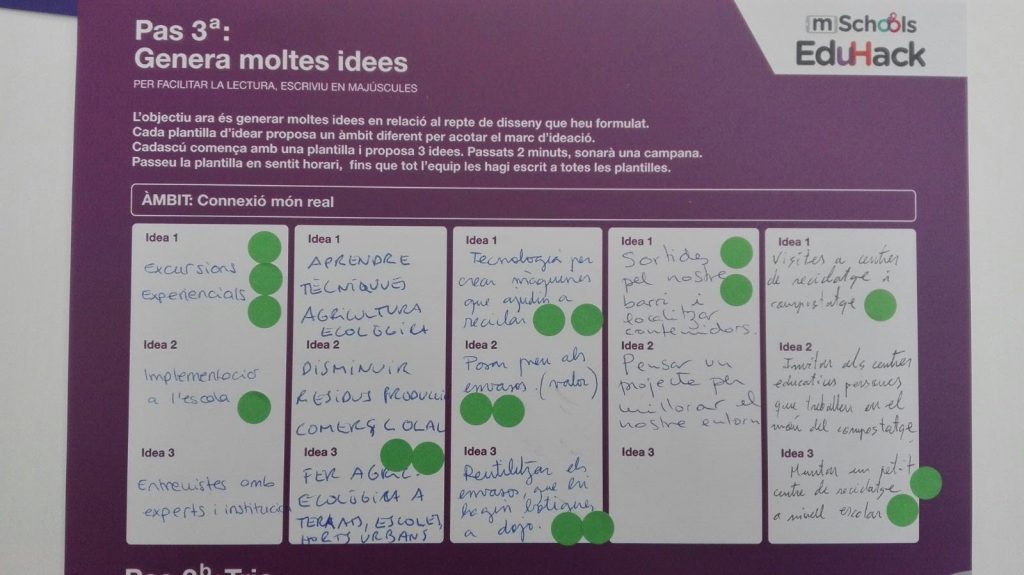 Pas 3ª:
Genera moltes idees
PER FACILITAR LA LECTURA, ESCRIVIU EN MAJÚSCULES
{mSchools
EduHack
L'objectiu ara és generar moltes idees en relació al repte de disseny que heu formulat.
Cada plantilla d'idear proposa un àmbit diferent per acotar el marc d'ideació.
Cadascú comença amb una plantilla i proposa 3 idees. Passats 2 minuts, sonarà una campana.
Passeu la plantilla en sentit horari, fins que tot l'equip les hagi escrit a totes les plantilles.
ÀMBIT: Connexió món real
Idea 1
Excursions
Experiencials
Idea 2
Implementació
a l'escola
Idea 3
Entrevistes amb
experts i institucio
Idea 1
APRENDRE
TÈCNIQUES
AGRICULTURA
ECOLÒGICA
Idea 2
DISMINUIR
RESIDUS PRODUCCI
COMERÇ LOCAL
Idea 3
FER AGRIC.
ECOLÒGICA A
TERRATS, ESCOLES,
HORTS URBANS
Idea 1
Tecnologia per
crear màquines
que ajudin a
reciclar
Idea 2
Posar preu als
envasos. (valor)
Idea 3
Reutilitzar els
envasos, que hi
hagin botigues
a dojo.
Idea 1
Sortides
pel nostre
barri i
localitzar
contenidors.
Idea 2
Pensar un
projecte per
millorar el
nostre entorn
Idea 3
Idea 1
Visites a centres
de reciclatge i
compostatge
Idea 2
Invitar als centres
educatius persones
que treballen en el
món del compostatge
Idea 3
Muntar un petit
centre de reciclatge
a nivell escolar